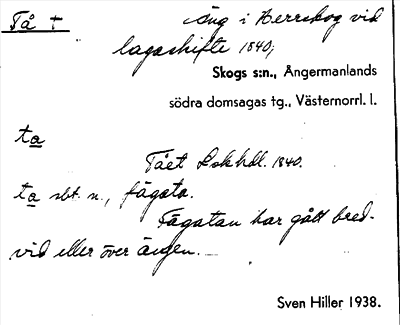 Tå † äng i Herrskog vid
lagaskifte 1840;
Skogs s:n., Ångermanlands
södra domsagas tg., Västernorrl. l.
ta
Tået Lskhdl. 1840.
ta sbt. n., fägata.
Fägatan har gått bred-
vid eller över ängen.
Sven Hiller 1938.